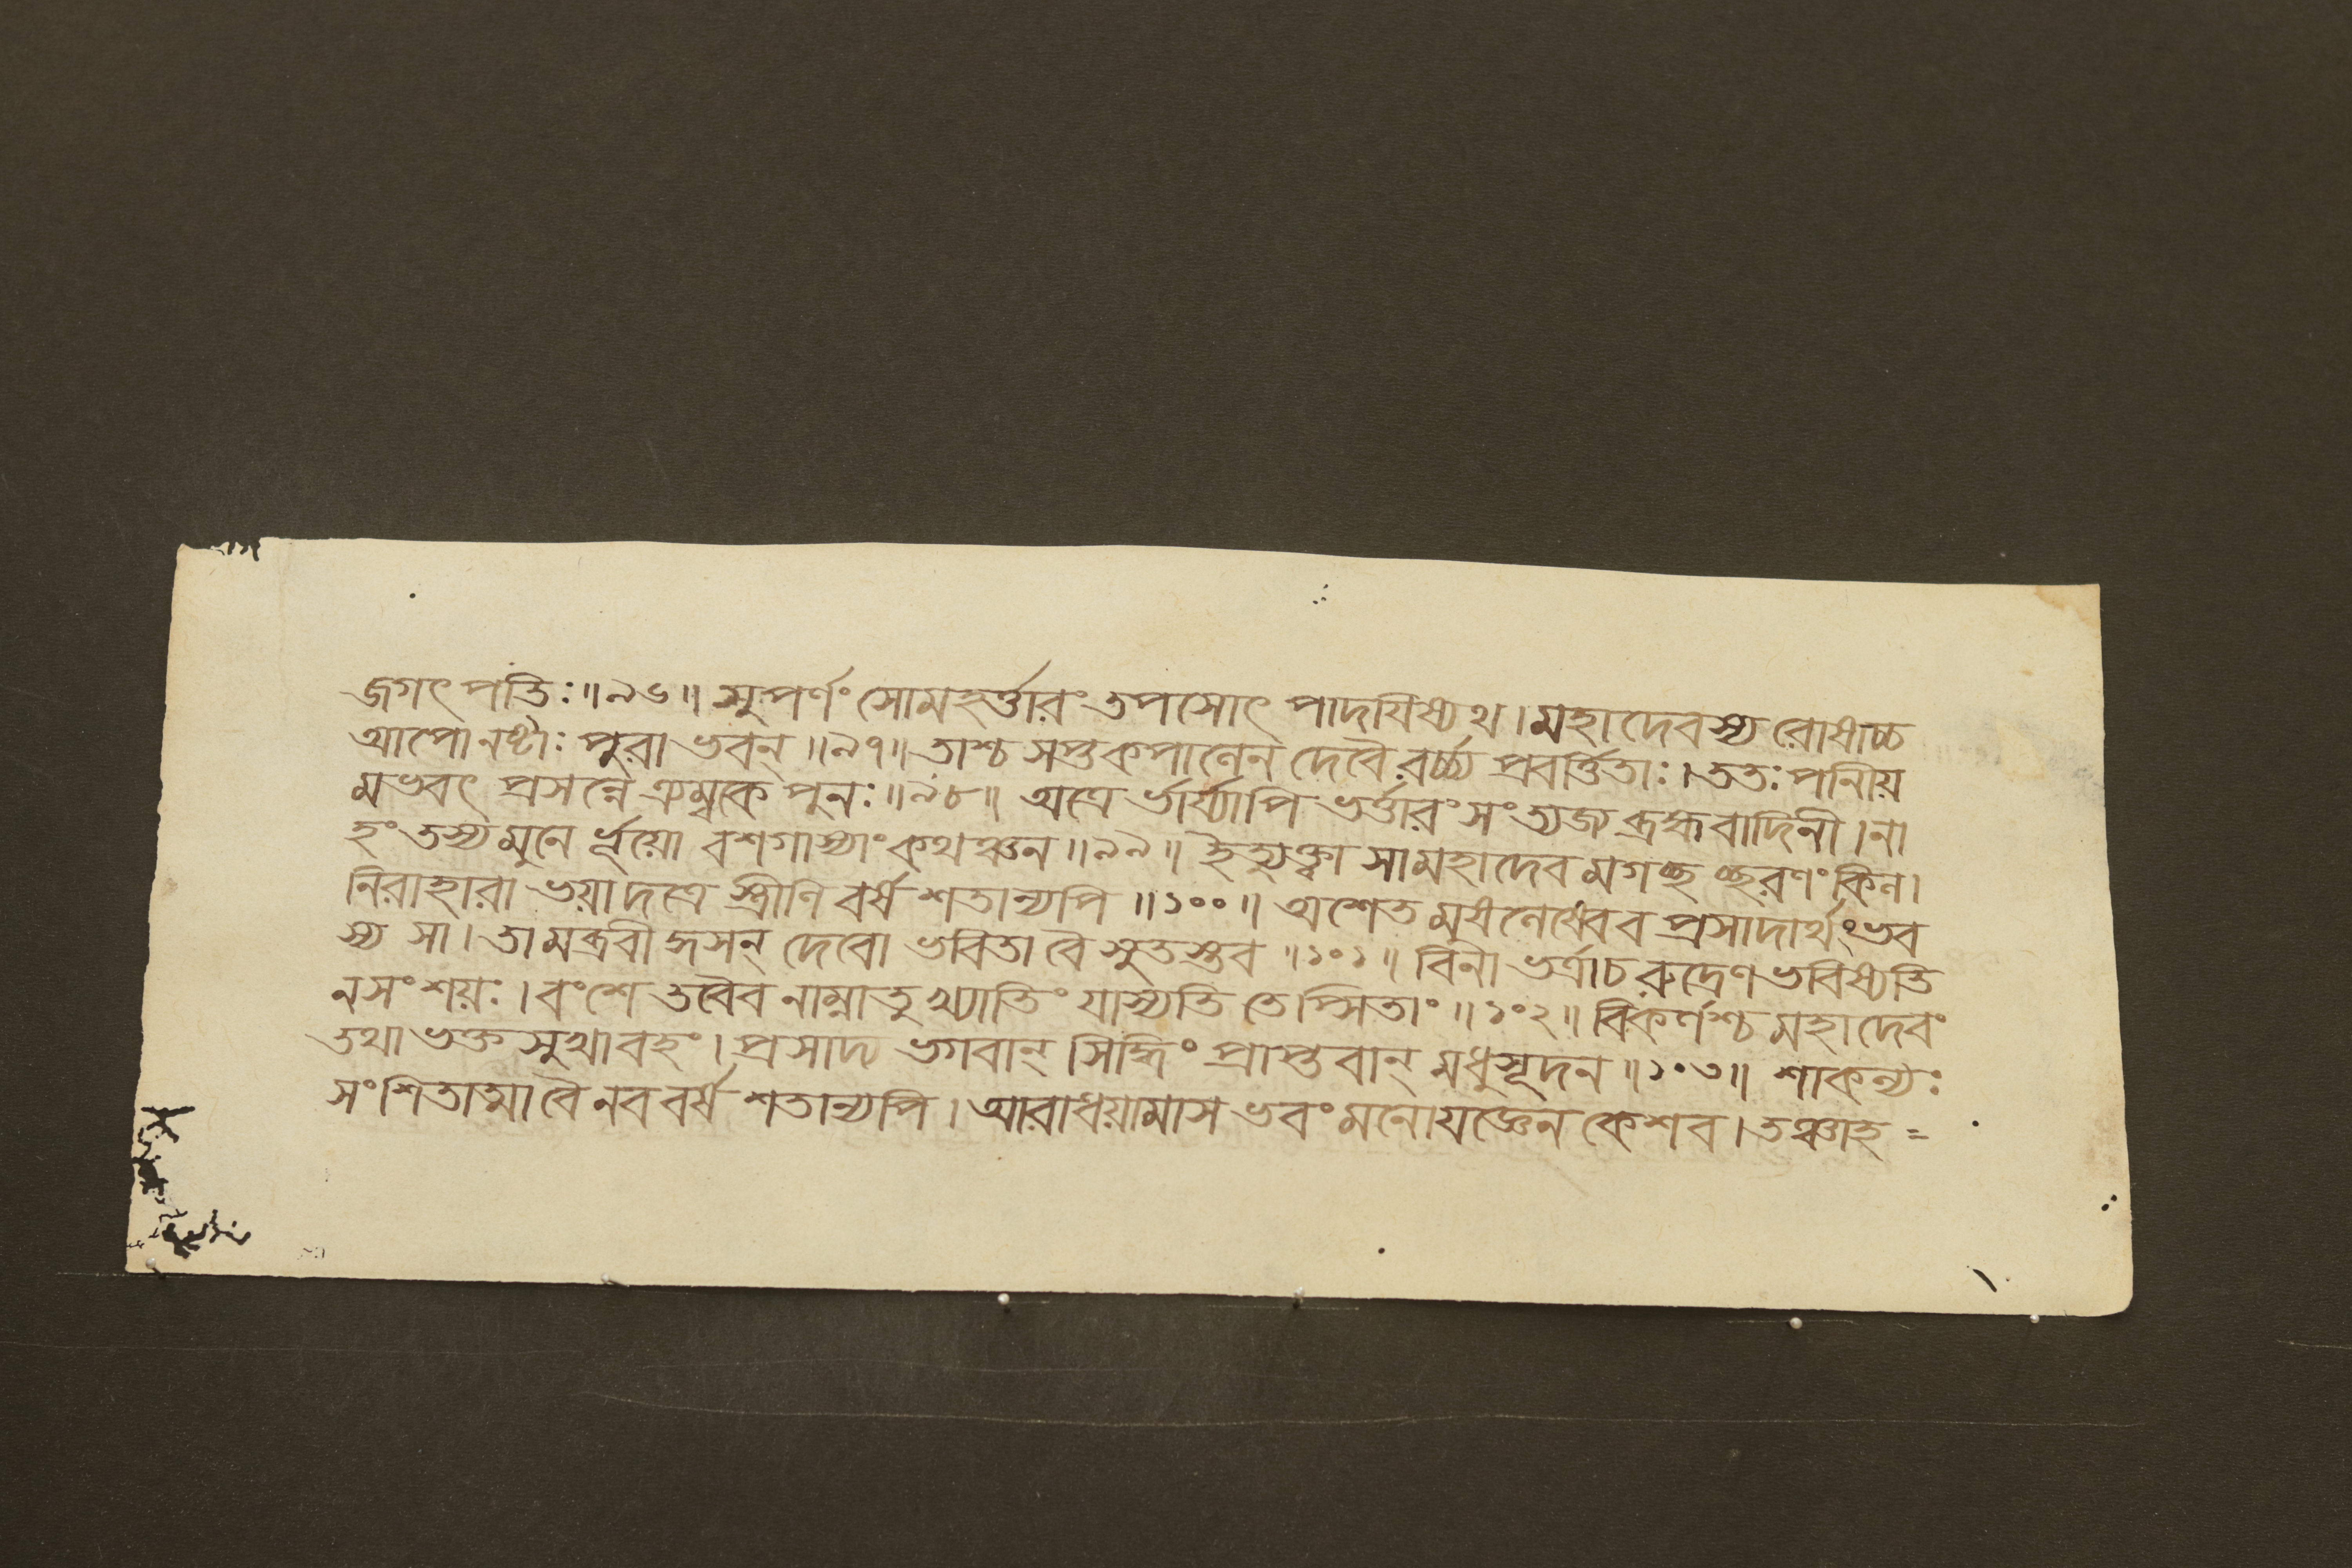 জগৎ পতিঃ॥৯৬॥ সুপর্ণং সোমহর্ত্তারং তপসোৎ পাদযিষ্যথ। মহাদেবস্য রোষাচ্চ
আপোনষ্টাঃ পুরা ভবন্॥৯৭॥ তাশ্চ সপ্তকপানেন দেবৈরর্চ্চ্য প্রবর্ত্তিতাঃ। ততঃ পানিীয়
মভবৎ প্রসন্নে ত্র্যম্বকে পুনঃ॥৯৮॥ অত্রে র্ভার্য্যাপি ভর্ত্তারং সংত্যজ্য ব্রহ্মবাদিনী। না
হং তস্য মুনে র্ভূয়ো বশগাস্যাং কথঞ্চন॥৯৯॥ ইত্যুক্ত্বা সা মহাদেব মগচ্ছ চ্ছরণং কিল।
নিরাহারা ভয়াদত্রে স্ত্রীণি বর্ষ শতান্যপি॥১০০॥ অশেত মুষলেষ্বেব প্রসাদার্থং ভব
স্য সা। তামব্রবী দ্ধসন্ দেবো ভবিতা বৈ সুতস্তব॥১০১॥ বিনা ভর্ত্রাচ রুদ্রেণ ভবিষ্যতি
ন সংশয়ঃ। বংশে তবৈব নাম্নাতু খ্যাতিং যাস্যতি তেপ্সিতাং॥১০২॥ বিকর্ণশ্চ মহাদেবং
তথা ভক্ত সুখাবহং। প্রসাদ্য ভগবান্ সিদ্ধিং প্রাপ্তবান্ মধুসূদন॥১০৩॥ শাকল্যঃ
সংশিতাত্মা বৈ নব বর্ষ শতান্যপি। আরাধয়ামাস ভবং মনোযজ্ঞেন কেশব। তঞ্চাহ =